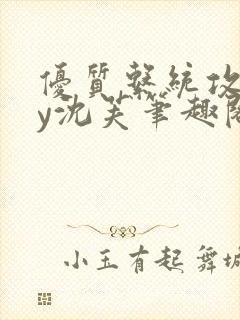 優質繫統攻
y沈芙筆趣閣
小玉有起舞城